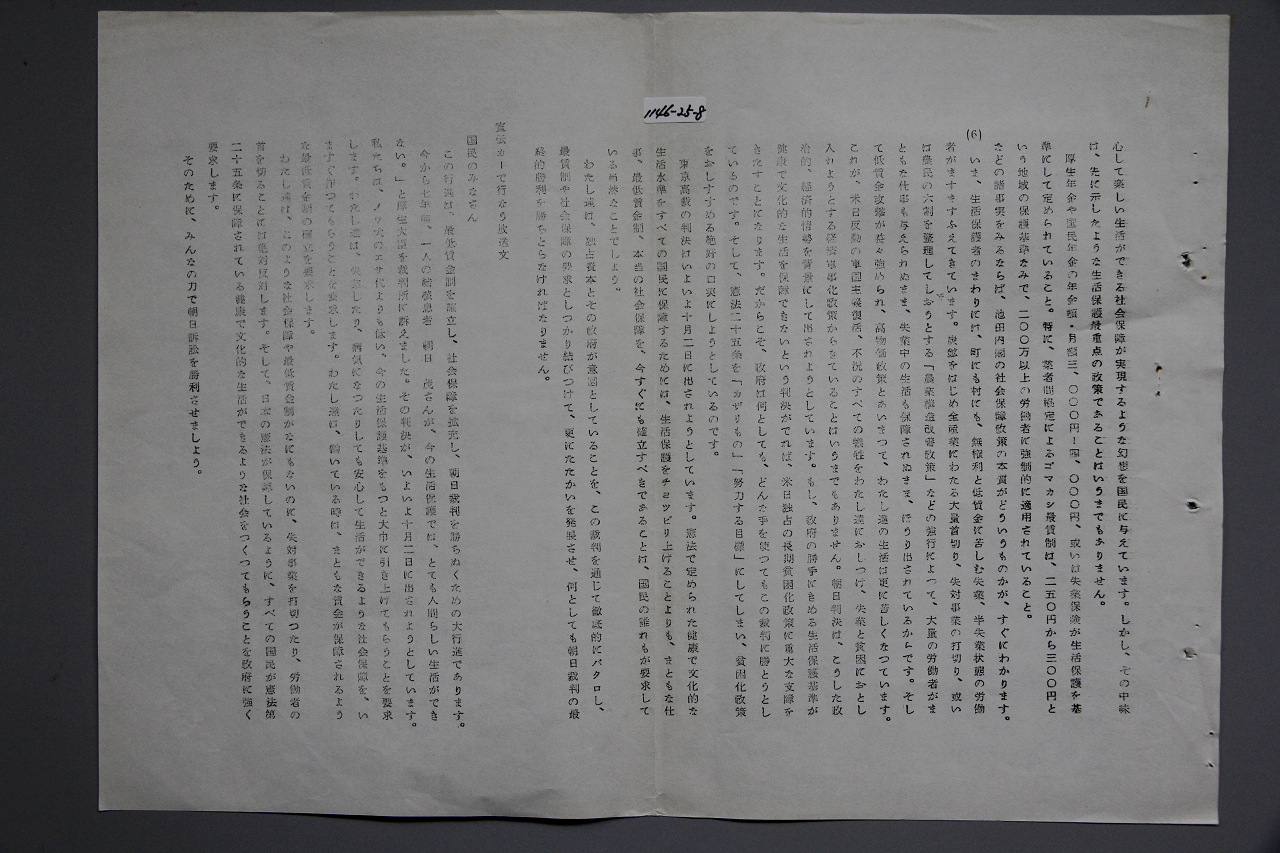 1146-25-8
心して楽しい生活ができる社会保障が実現するような幻想を国民に与えています。しかし、その中味
は、先に示したような生活保護最重点の政策であることはいうまでもありません。
厚生年金や国民年金の年金額・月額三、〇〇〇円!四、〇〇〇円、或いは失業保険が生活保護を基
準にして定められていること。特に、業者間協定によるゴマカシ最賃制は、二五〇円から三〇〇円と
いう地域の保護基準なみで、二〇〇万以上の労働者に強制的に適用されていること。
などの諸事実をみるならば、池田内閣の社会保障政策の本質がどういうものかが、すぐにわかります。
(6) いま、生活保護者のまわりには、町にも村にも、無権利と低賃金に苦しむ失業、半失業状態の労働
者がますますふえてきています。炭鉱をはじめ全産業にわたる大量首切り、失対事業の打切り、或い
は農民の六割を整理してしおうとする「農業構造改善政策」などの強行によつて、大量の労働者がま
ともな仕事も与えられぬまま、失業中の生活も保障されぬまま、ほうり出されているからです。そし
て低賃金攻撃が益々強められ、高物価政策とあいまつて、わたし達の生活は更に苦しくなつています。
これが、米日反動の軍国主義復活、不況のすべての犠牲をわたし達におしつけ、失業と貧困におとし
入れようとする経済軍事化政策からきていることはいうまでもありません。朝日判決は、こうした政
治的、経済的情勢を背景にして出されようとしています。もし、政府の勝手にきめる生活保護基準が
健康で文化的な生活を保障できないという判決がでれば、米日独占の長期貧困化政策に重大な支障を
きたすことになります。だからこそ、政府は何としても、どんな手を使つてもこの裁判に勝とうとし
ているのです。そして、憲法二十五条を「カザりもの」「努力する目標」にしてしまい、貧困化政策
をおしすすめる絶好の口実にしようとしているのです。
東京高裁の判決はいよいよ十月二日に出されようとしています。憲法で定められた健康で文化的な
生活水準をすべての国民に保障するためには、生活保護をチョッピリ上げることよりも、まともな仕
事、最低賃金制、本当の社会保障を、今すぐにも確立すべきであることは、国民の誰れもが要求して
いる当然なことでしょう。
わたし達は、独占資本とその政府が意図としていることを、この裁判を通じて徹底的にバクロし、
最賃制や社会保障の要求としつかり結びつけて、更にたたかいを発展させ、何としても朝日裁判の最
終的勝利を勝ちとらなければなりません。
宣伝カーで行なう放送文
国民のみなさん
この行進は、最低賃金制を確立し、社会保障を拡充し、朝日裁判を勝ちぬくための大行進であります。
今から七年前、一人の結核患者 朝日 茂さんが、今の生活保護では、とても人間らしい生活ができ
ない。」と厚生大臣を裁判所に訴えました。その判決が、いよいよ十月二日に出されようとしています。
私たちは、ノラ犬のエサ代よりも低い、今の生活保護基準をもつと大巾に引き上げてもらうことを要求
します。わたし達は、失業したり、病気になつたりしても安心して生活ができるような社会保障を、い
ますぐ作つてもらうことを要求します。わたし達は、働いている時は、まともな賃金が保障されるよう
な最低賃金制の確立を要求します。
わたし達は、このような社会保障や最低賃金制がなにもないのに、失対事業を打切つたり、労働者の
首を切ることには絶対反対します。そして、日本の憲法が保障しているように、すべての国民が憲法第
二十五条に保障されている健康で文化的な生活ができるような社会をつくつてもらうことを政府に強く
要求します。
そのために、みんなの力で朝日訴訟を勝利させましょう。